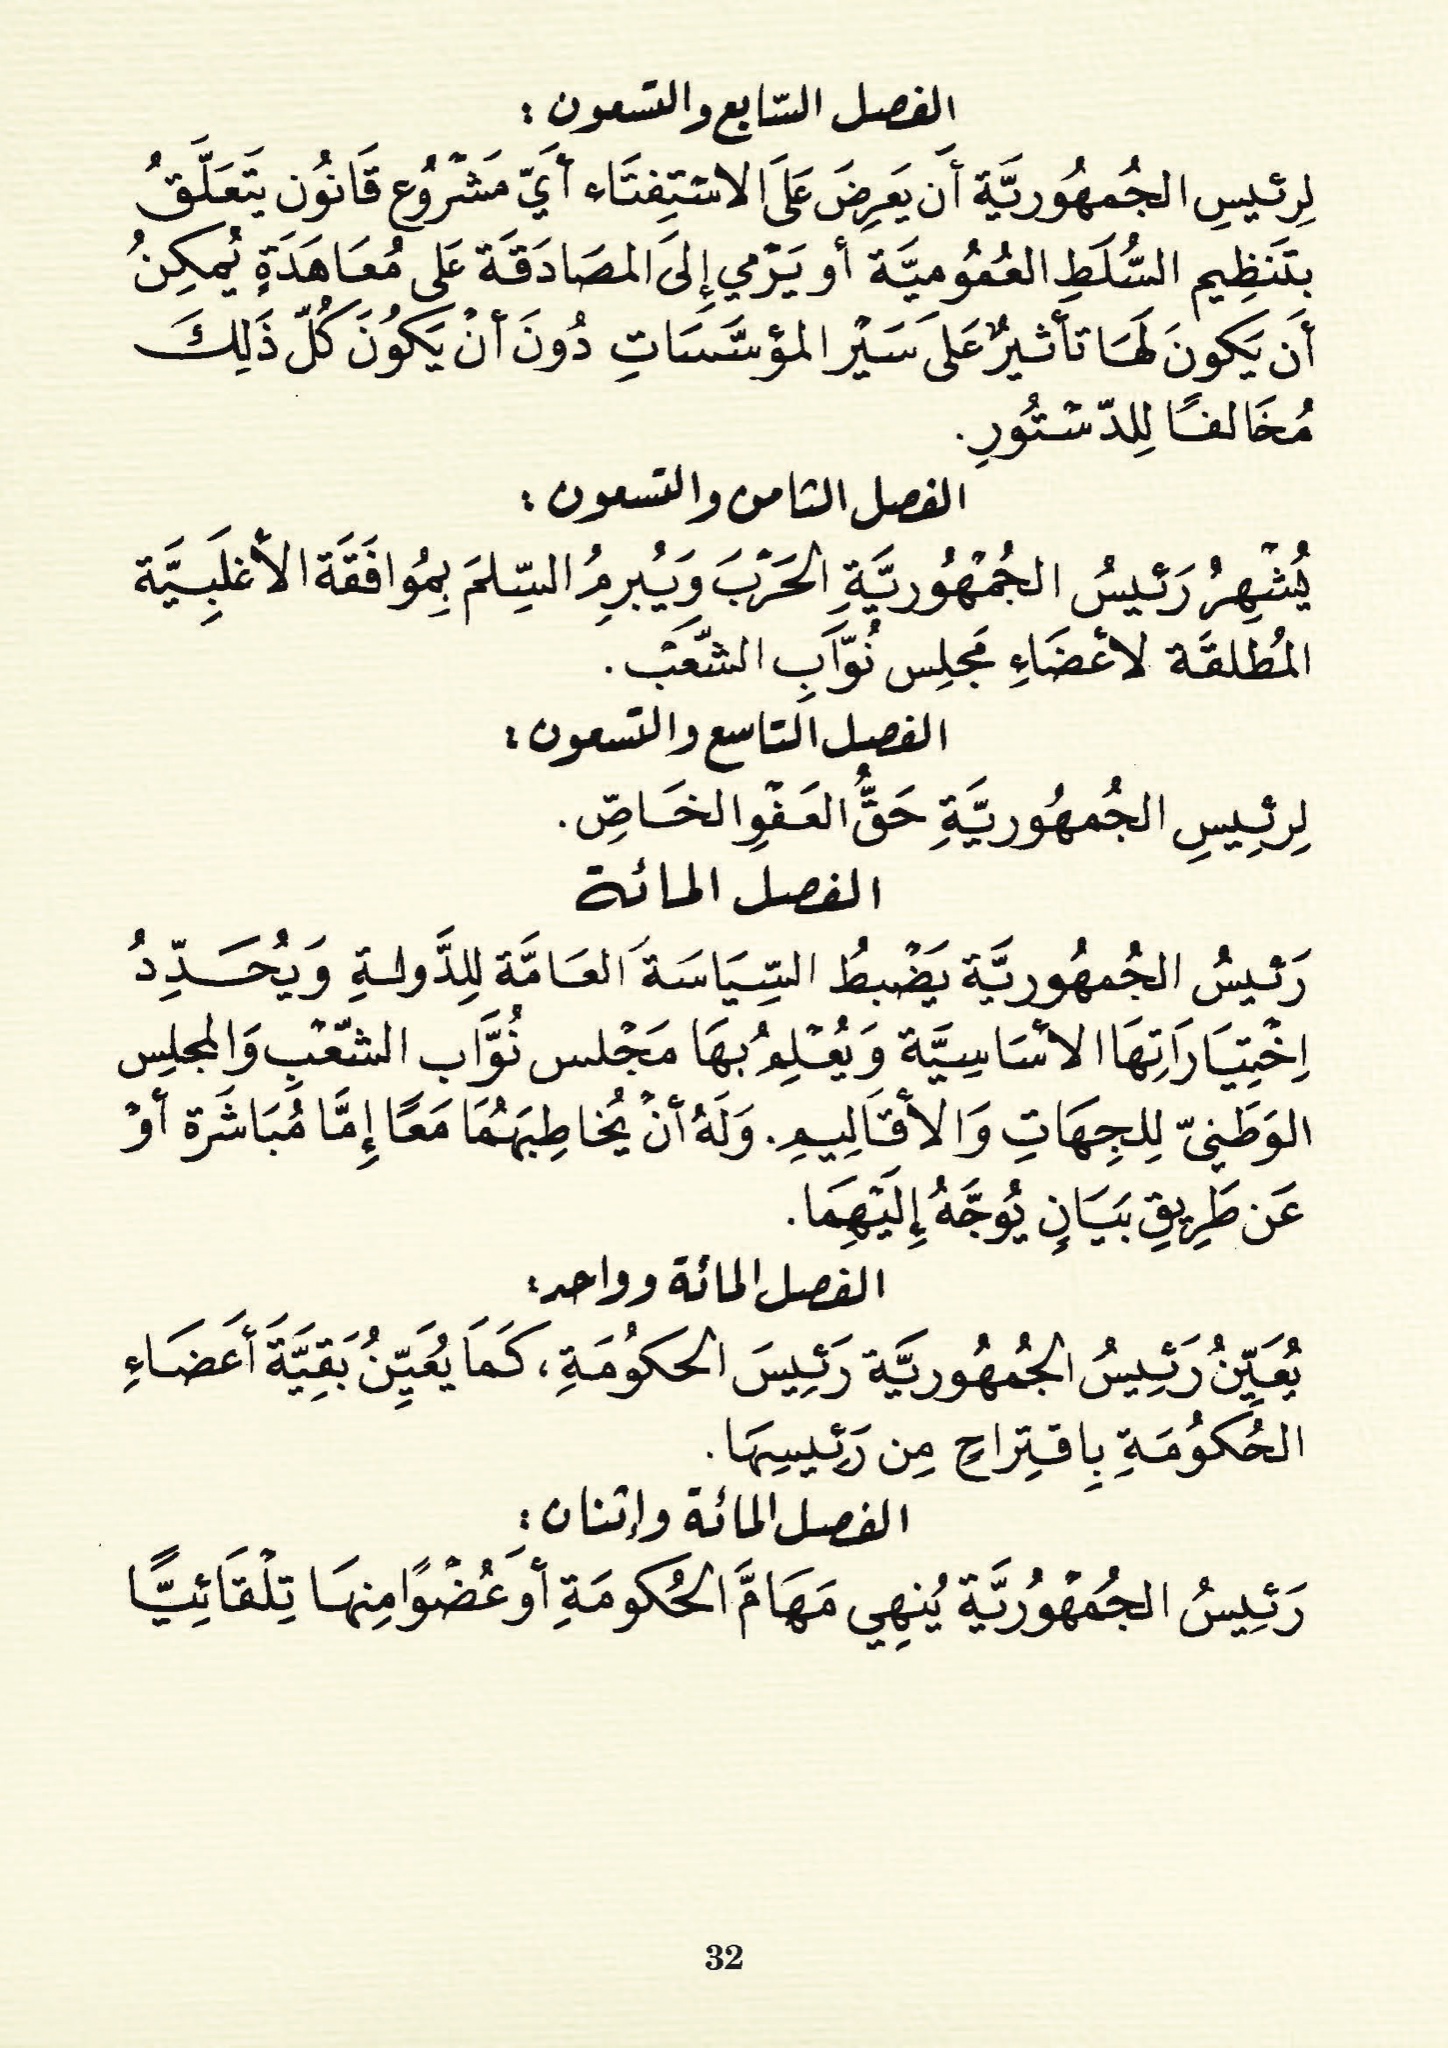 الفصل السّابع والتسعون :
لِرئيسِ الجُمهُوريَّة أَن يَعرِضَ عَلَى الاسْتِفتَاء أيَّ مَشْرُوع قَانُون يتَعَلَّقُ
بتَنظِيم السُّلَطِ العُمُوميَّة أو يَرْمي إِلىَ المصَادَقَة عَلى مُعَاهَدَةٍ يُمكِنُ
أَن يَكونَ لَهَا تأثيرٌ عَلَى سَيْر المؤسَّسَاتِ دُونَ أنْ يَكوُنَ كُلّ ذَلِكَ
مُخَالفًا لِلدّسْتُورِ.
الفصل الثامن والتسعون :
يُشْهِرُ رَئيسُ الجُمْهُوريَّةِ الحَرْبَ وَيُبرِمُ السِّلمَ بِمُوافَقَة الأغلَبِيَّة
المُطلقَة لأعضَاءِ مَجلِس نُوَّابِ الشَّعَبْ.
الفصل التاسع والتسعون :
لِرئِيسِ الجُمهُوريَّةِ حَقُّ العَفْوِ الخَاصِّ.
الفصل المائة
رَئيسُ الجُمهُوريَّة يَضْبطُ السِّيَاسَةَ العَامَّة لِلدَّولةِ وَيُحَدِّدُ
اِخْتِيَارَاتِهَا الأسَاسِيَّة وَيُعْلِمُ بهَا مَجْلس نُوَّاب الشّعْبِ وَالمجلِس
الوَطَنيّ لِلجِهَاتِ وَالأقَالِيمِ. وَلَهُ أنْ يُخاطِبَهُمَا مَعًا إِمَّا مُبَاشَرَة أوْ
عَن طَرِيقِ بَيَانٍ يُوَجَّهُ إِلَيْهِمَا.
الفصل المائة وواحد:
يُعَيِّنُ رَئِيسُ الجُمُهُوريَّة رَئِيسَ الحكوُمَةِ، كَمَا يُعَيِّنُ بَقِيَّةَ أَعَضَاءِ
الحُكوُمَةِ بِاقتِراحٍ مِن رَئِيسِهَا.
الفصل المائة وإثنان:
رَئِيسُ الجُمْهُوُريَّة يُنهِي مَهَامَّ الحُكومَةِ أوَ عُضْوًا مِنهَا تِلْقَائِيًّا
32